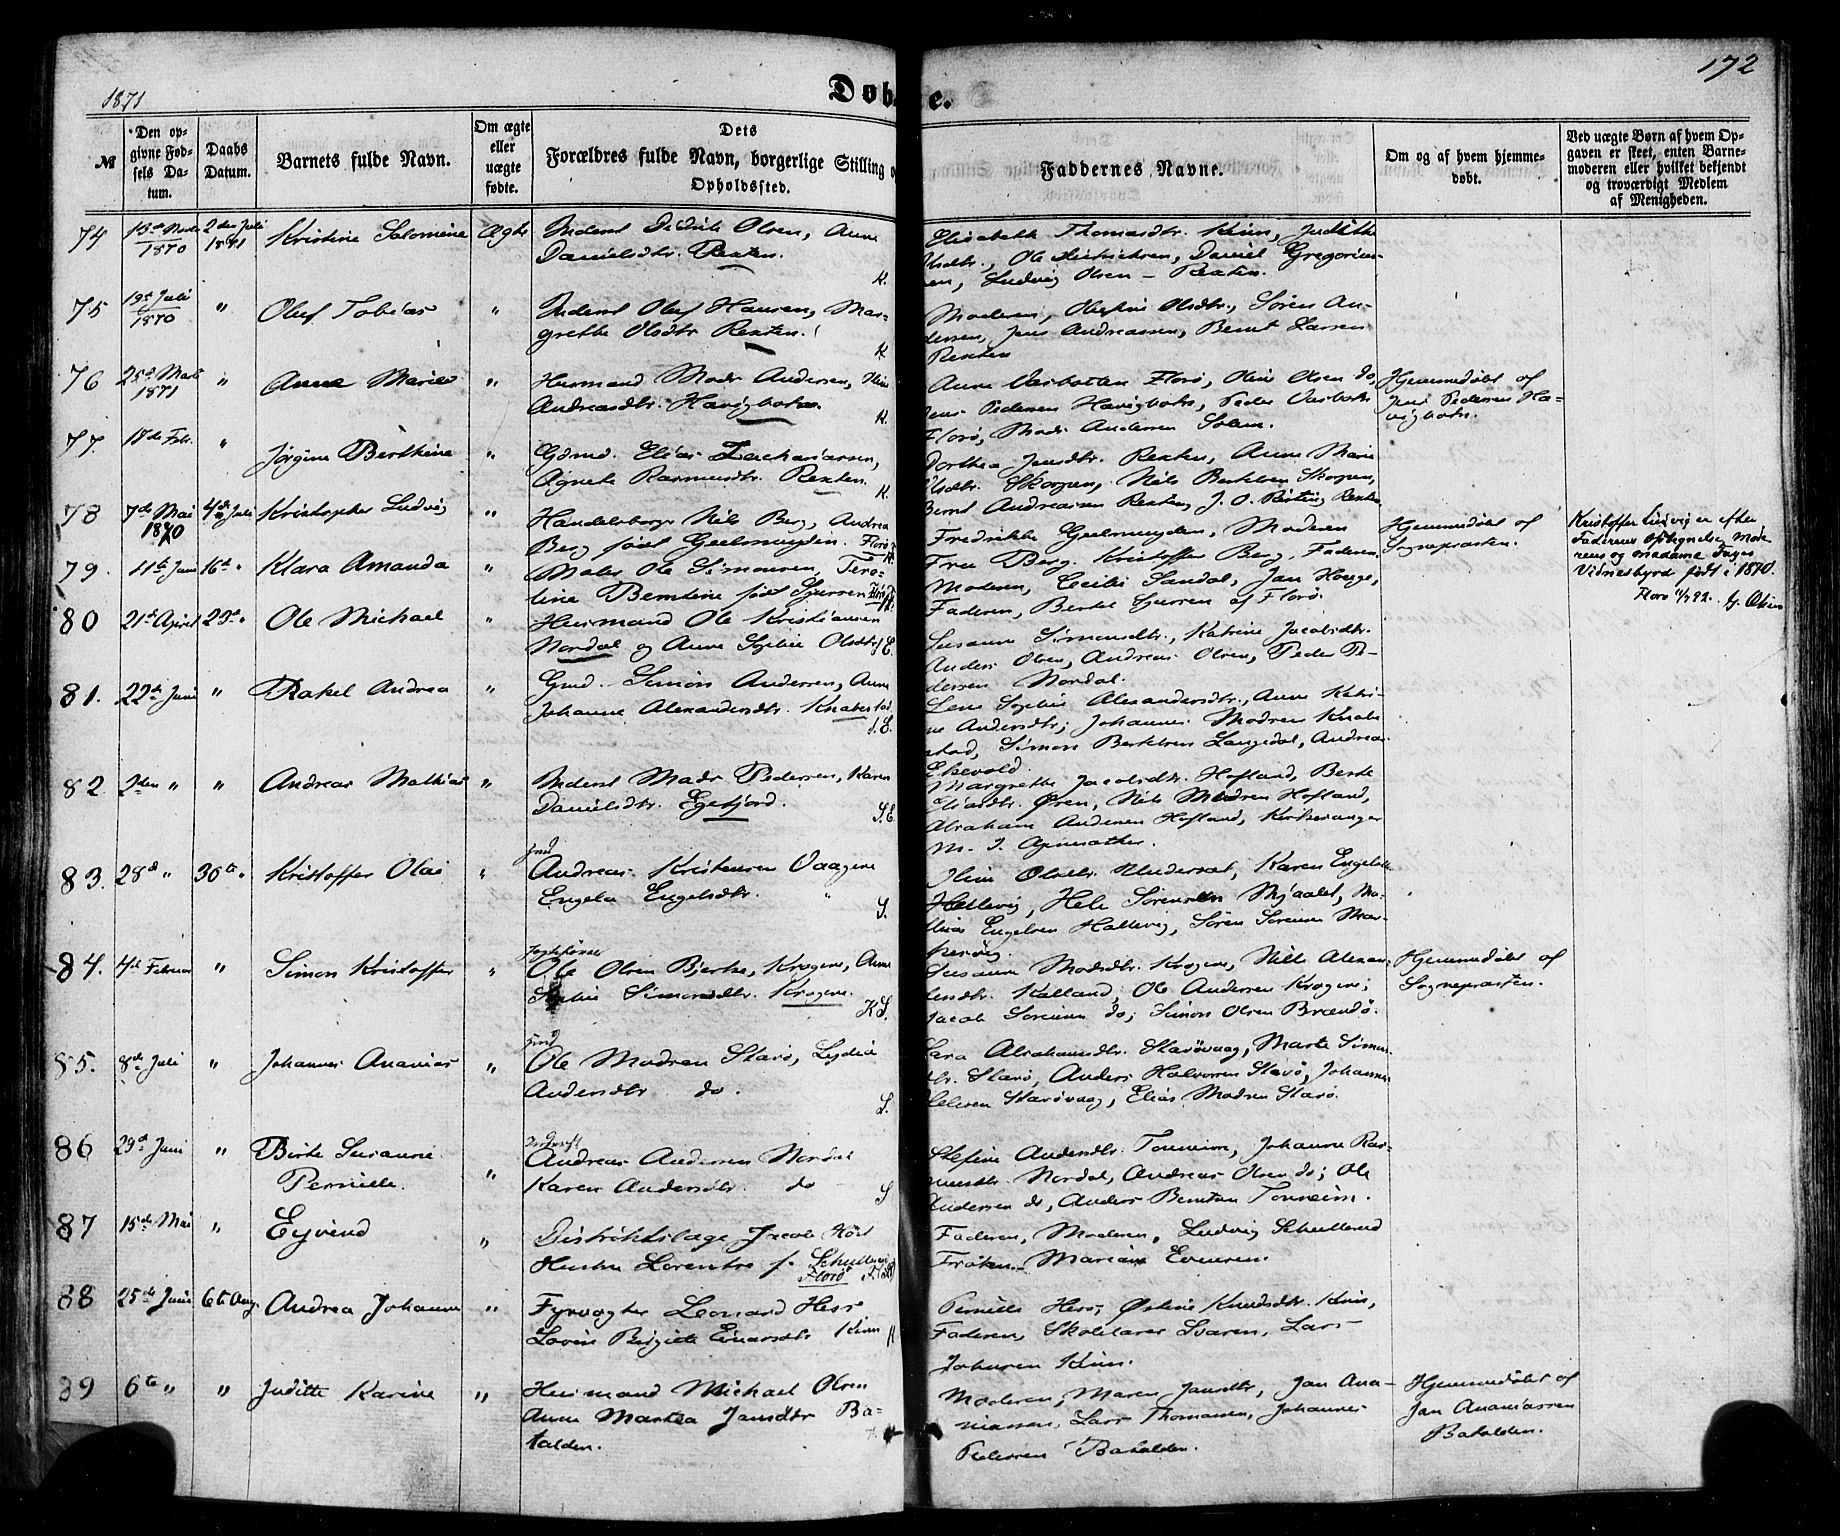 1871
Døb e.
172
№
Den op-
givne Fød-
sels Da-
tum.
Daabs
Datum.
Barnets fulde Navn.
Om ægte
eller
uægte
fødte.
Dets
Forældres fulde Navn, borgerlige Stilling o
Opholdssted.
Faddernes Navne.
Om og af hvem hjemme-
døbt.
Ved uægte Børn af hvem Op-
gaven er skeet, enten Barne-
moderen eller hvilket bekjendt
og troværdigt Medlem
af Menigheden.
74
1870
2den Juli
1871
Kristine Salomine
Ægte
Inderst Didrik Olsen, Anne
Danielsdtr. Rexten.
K.
Elisabeth Thomasdtr. Kinn, Judithe
Olsdtr., Ole Didriksen, Daniel Gregorius-
sen, Ludvig Olsen - Rexten.
75
19de Juli
1870
"
Oluf Tobias
"
Inderst Oluf Hansen, Mar-
grethe Olsdtr Rexten.
K.
Moderen, Olsdtr., Søren An-
dersen, Jens Andreassen, Bernt Larsen
Rexten
76
25de Marts
1871
"
Anne Marie
"
Husmand Mads Andersen,
Andreasdtr. Havigbotn.
K.
Anne Florø, Olsen do,
Jens Pedersen Havigbotn, Peder
Florø, Mads Andersen Solem.
Hjemmedøbt af
Jens Pedersen Ha-
vigbotn.
77.
18de Febr.
"
Jørgine Berthine
"
Gdmd. Elias Zachariassen,
Agnete Rasmusdtr. Rexten.
K.
Dorthea Jensdtr. Rexten, Anne Marie
Olsdtr. Skorpen, Nils Berthelsen Skorpen,
Bernt Andreassen Rexten, J. O.
78
7de Mai
1870
4de Juli
Kristopher Ludvig
"
Handelsborger Nils Berg, Andrea
Berg født Geelmuyden. Florø
K.
Fredrikke Geelmuyden, Moderen
Fru Berg, Kristoffer Berg, Faderen
Hjemmedøbt af
Sognepræsten.
Kristoffer Ludvig er efter
Faderens Optegnelse, Mode-
rens og madame
Vidnesbyrd født i 1870.
Florø
79.
11te Juni
16de "
Klara Amanda
"
Maler Ole Simonsen, Tero-
line Berntine født
Moderen, Cecilie Sandal, Jan Hauge,
Faderen, Berthe af Florø.
80
21de April
23de "
Ole Michael
"
Husmand Ole Kristiansen
Nordal og Anne Sophie Olsdtr
S.E.
Susanne Simonsdtr., Katrine Jacobsdtr.
Anders Olsen, Andreas Olsen, Peder Pe-
dersen Nordal.
81.
22de Juni
"
Rakel Andrea
"
Gmd. Simon Andersen, Anne
Johanne Alexandersdtr. Knabestad
S.E.
Lene Sophie Alexandersdtr., Anne Katri-
ne Andersdtr; Johannes Madsen Knabe-
stad, Simon Berthelsen Langedal, Andreas
Ekevold.
82.
2den "
"
Andreas Mathias
"
Inderst Mads Pedersen, Karen
Danielsdtr. Egefjord.
S.E.
Margrethe Jacobsdtr. Hofland, Berte
Eliasdtr. Øren, Nils Madsen Hofland,
Abraham Andersen Hofland, Kirkesanger
M. J.
83.
28de "
30te "
Kristoffer Olai
"
Gmd
Andreas Kristensen Vaagene
Engela Engelsdtr. "
S.
Karen Engels
Hellevig, Hele Sørensen
Engelsen Hellevig, Søren Sørensen
84.
4de Februar
"
Simon Kristoffer
"
Ole Olsen Bjerke, Krogene, Anne
Sophie Simonsdtr. Krogene.
K.S.
Susanne Madsdtr. Krogene, Nille Alexan-
dersdtr. Kalland, Ole Andersen Krogene;
Jacob Sørensen do; Simon Olsen Brandø.
Hjemmedøbt af
Sognepræsten.
85.
8de Juli
"
Johannes Ananias
"
Gmd
Ole Madsen Stavø, Lydia
Andersdtr do.
S.
Sara Abrahamsdtr. Stavøvaag, Marte Simons-
dtr. Stavø, Anders Halvorsen Stavø, Johannes
Stavøvaag, Elias Madsen Stavø.
86
29de Juni
"
Birte Susanne
Pernille.
"
Inderst
Andreas Andersen Nordal
Karen Andersdtr. do
S
Stefine Andersdtr. Tonheim, Johanne Ras-
musdtr. Nordal, Andreas Olsen do; Ole
Andersen do, Anders Bentsen Tonheim.
87
15de Mai
"
Eyvind
"
Distriktslæge Jacob
Hustru Lorentse f.
Florø
Faderen, Moderen, Ludvig Schulterud
Frøken
88
25de Juni
6te Aug.
Andrea Johanne
"
Fyrvogter Leonard Hess
Lovise Birgitte Einarsdtr Kinn
K
Pernille Hess, Østine Knudsdtr. Kinn,
Faderen, Skolelærer Svaren, Lars
Johnsen Kinn.
89
6te "
"
Juditte Karine
"
Husmand Michael Olsen
Anne Martea Jansdtr Ba-
talden.
Moderen, Maren Jansdtr, Jan Ana-
niassen, Lars Thomassen, Johannes
Pedersen Batalden.
Hjemmedøbt af
Jan Ananiassen
Batalden.